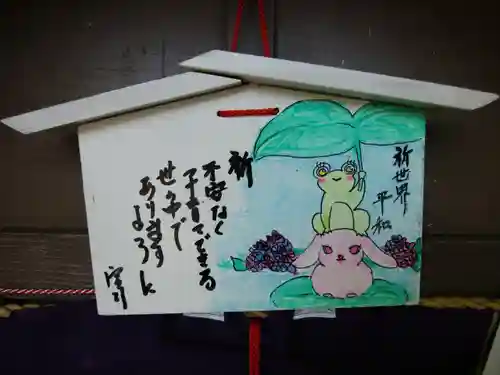 祈
不安なく
子育てできる
世の中で
ありますように
祈世界
平和